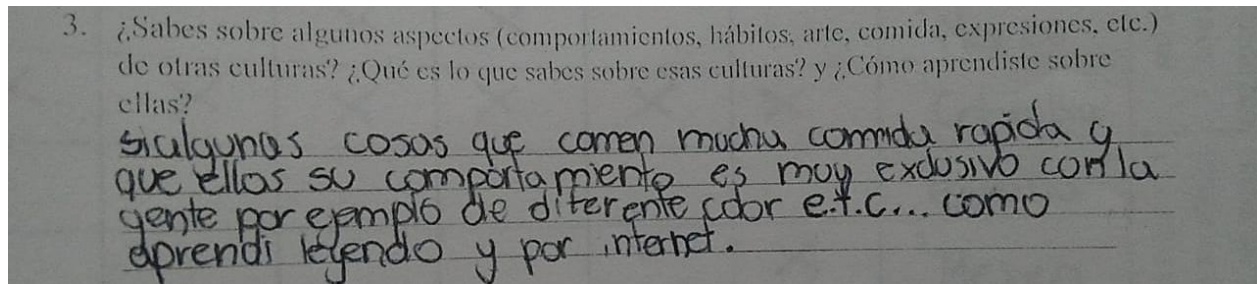 3. ¿Sabes sobre algunos aspectos (comportamientos, hábitos, arte, comida, expresiones, etc.)
de otras culturas? ¿Qué es lo que sabes sobre esas culturas? y ¿Cómo aprendiste sobre
ellas?
si algunas cosas que comen mucha commida rapida y
que ellos su comportamiento es muy exclusivo con la
gente por ejemplo de diferente color e.t.c... como
aprendi leyendo y por internet.